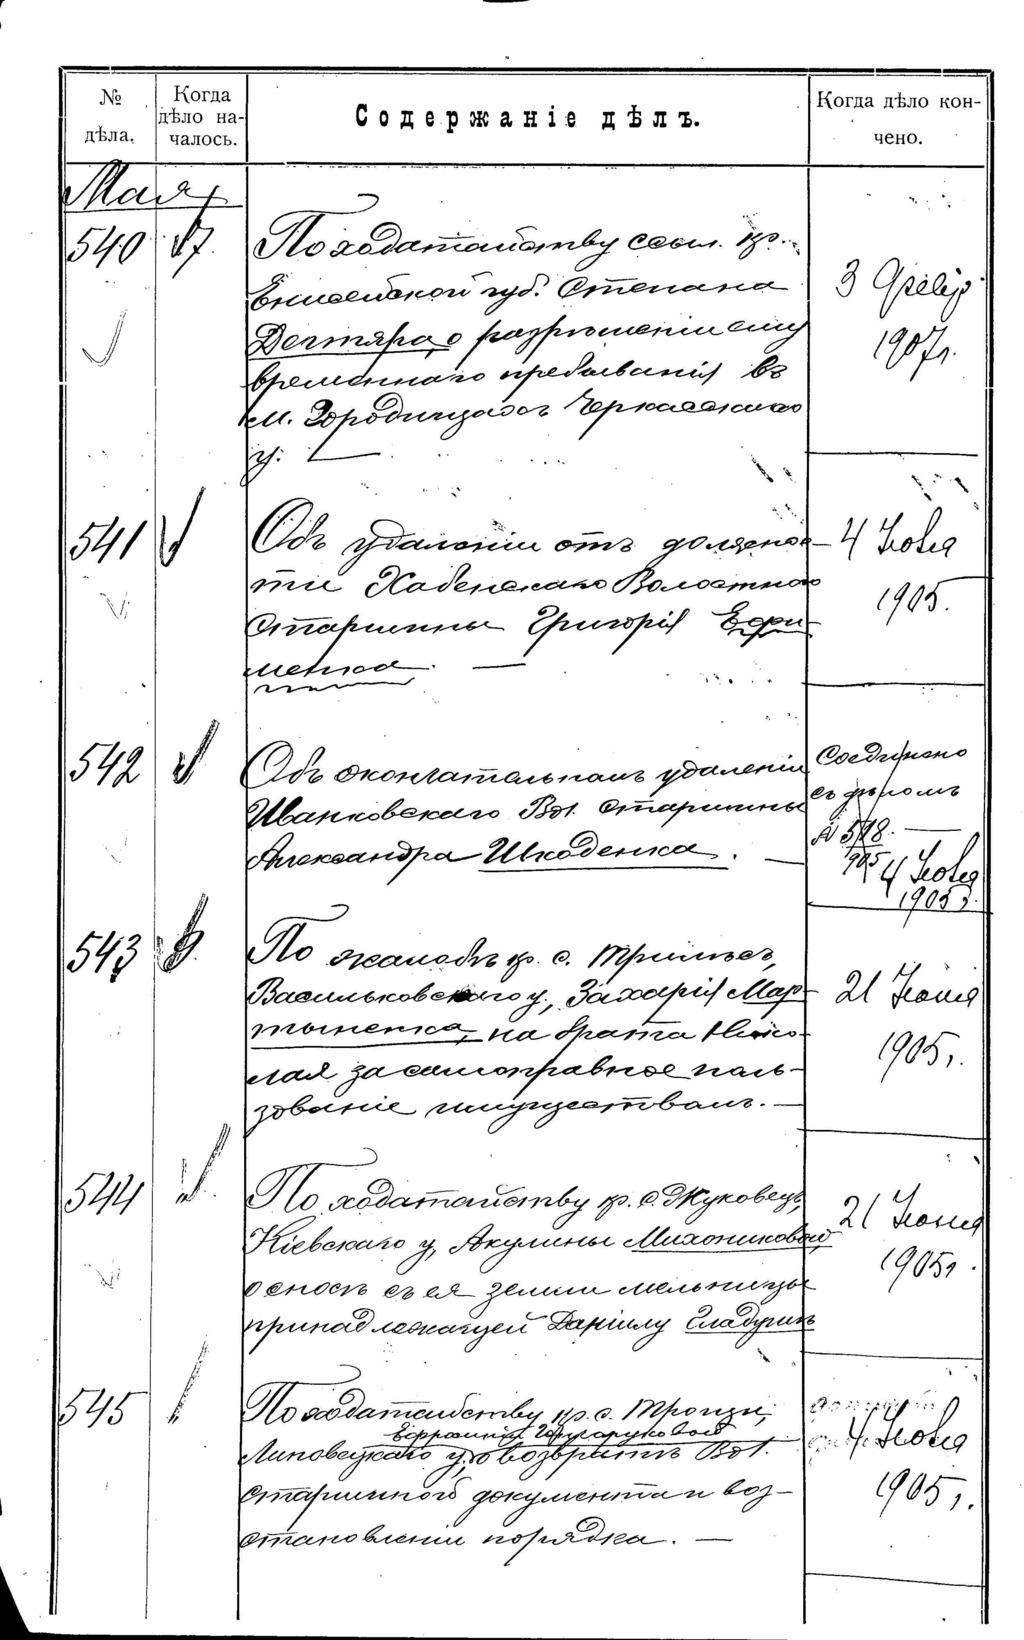 № дѣла.
Когда дѣло на-
чалось.
Содержаніе дѣлъ.
Когда дѣло кон-
чено.
Мая
540 17.
По ходатайству ссыл. кр.
Енисейской губ. Степана
Дегтяра о разрѣшеніи ему
временнаго пребыванія въ
м. Городищахъ Черкасскаго
у. —
3
1907 г.
541
Объ удаленіи отъ должнос-
ти Хабенскаго Волостного
Старшины Григорія Ефи-
менка. —
4 Ноября
1905.
542
Объ окончательномъ удаленіи
Иванковскаго Вол. Старшины
Александра Шкоденка. —
Соединено
съ дѣломъ
№ 578. —
905
4 Ноября
1905 г.
543
По жалобѣ кр. с. Трилѣсъ,
Васильковскаго у., Захарія Мар-
тыненка, на брата Нико-
лая за самоправное поль-
зованіе имуществомъ. —
21 Іюня
1905 г.
544
По ходатайству кр. с. Жуковецъ,
Кіевскаго у. Акулины Михониковой
о сносѣ съ ея земли мельницы
принадлежащей Даніилу
21 Іюня
1905 г.
545
По ходатайству кр. с.
Липовецкаго у., о возвратѣ Вол.
Старшиной документа и воз-
становленіи порядка. —
4 Ноября
1905 г.